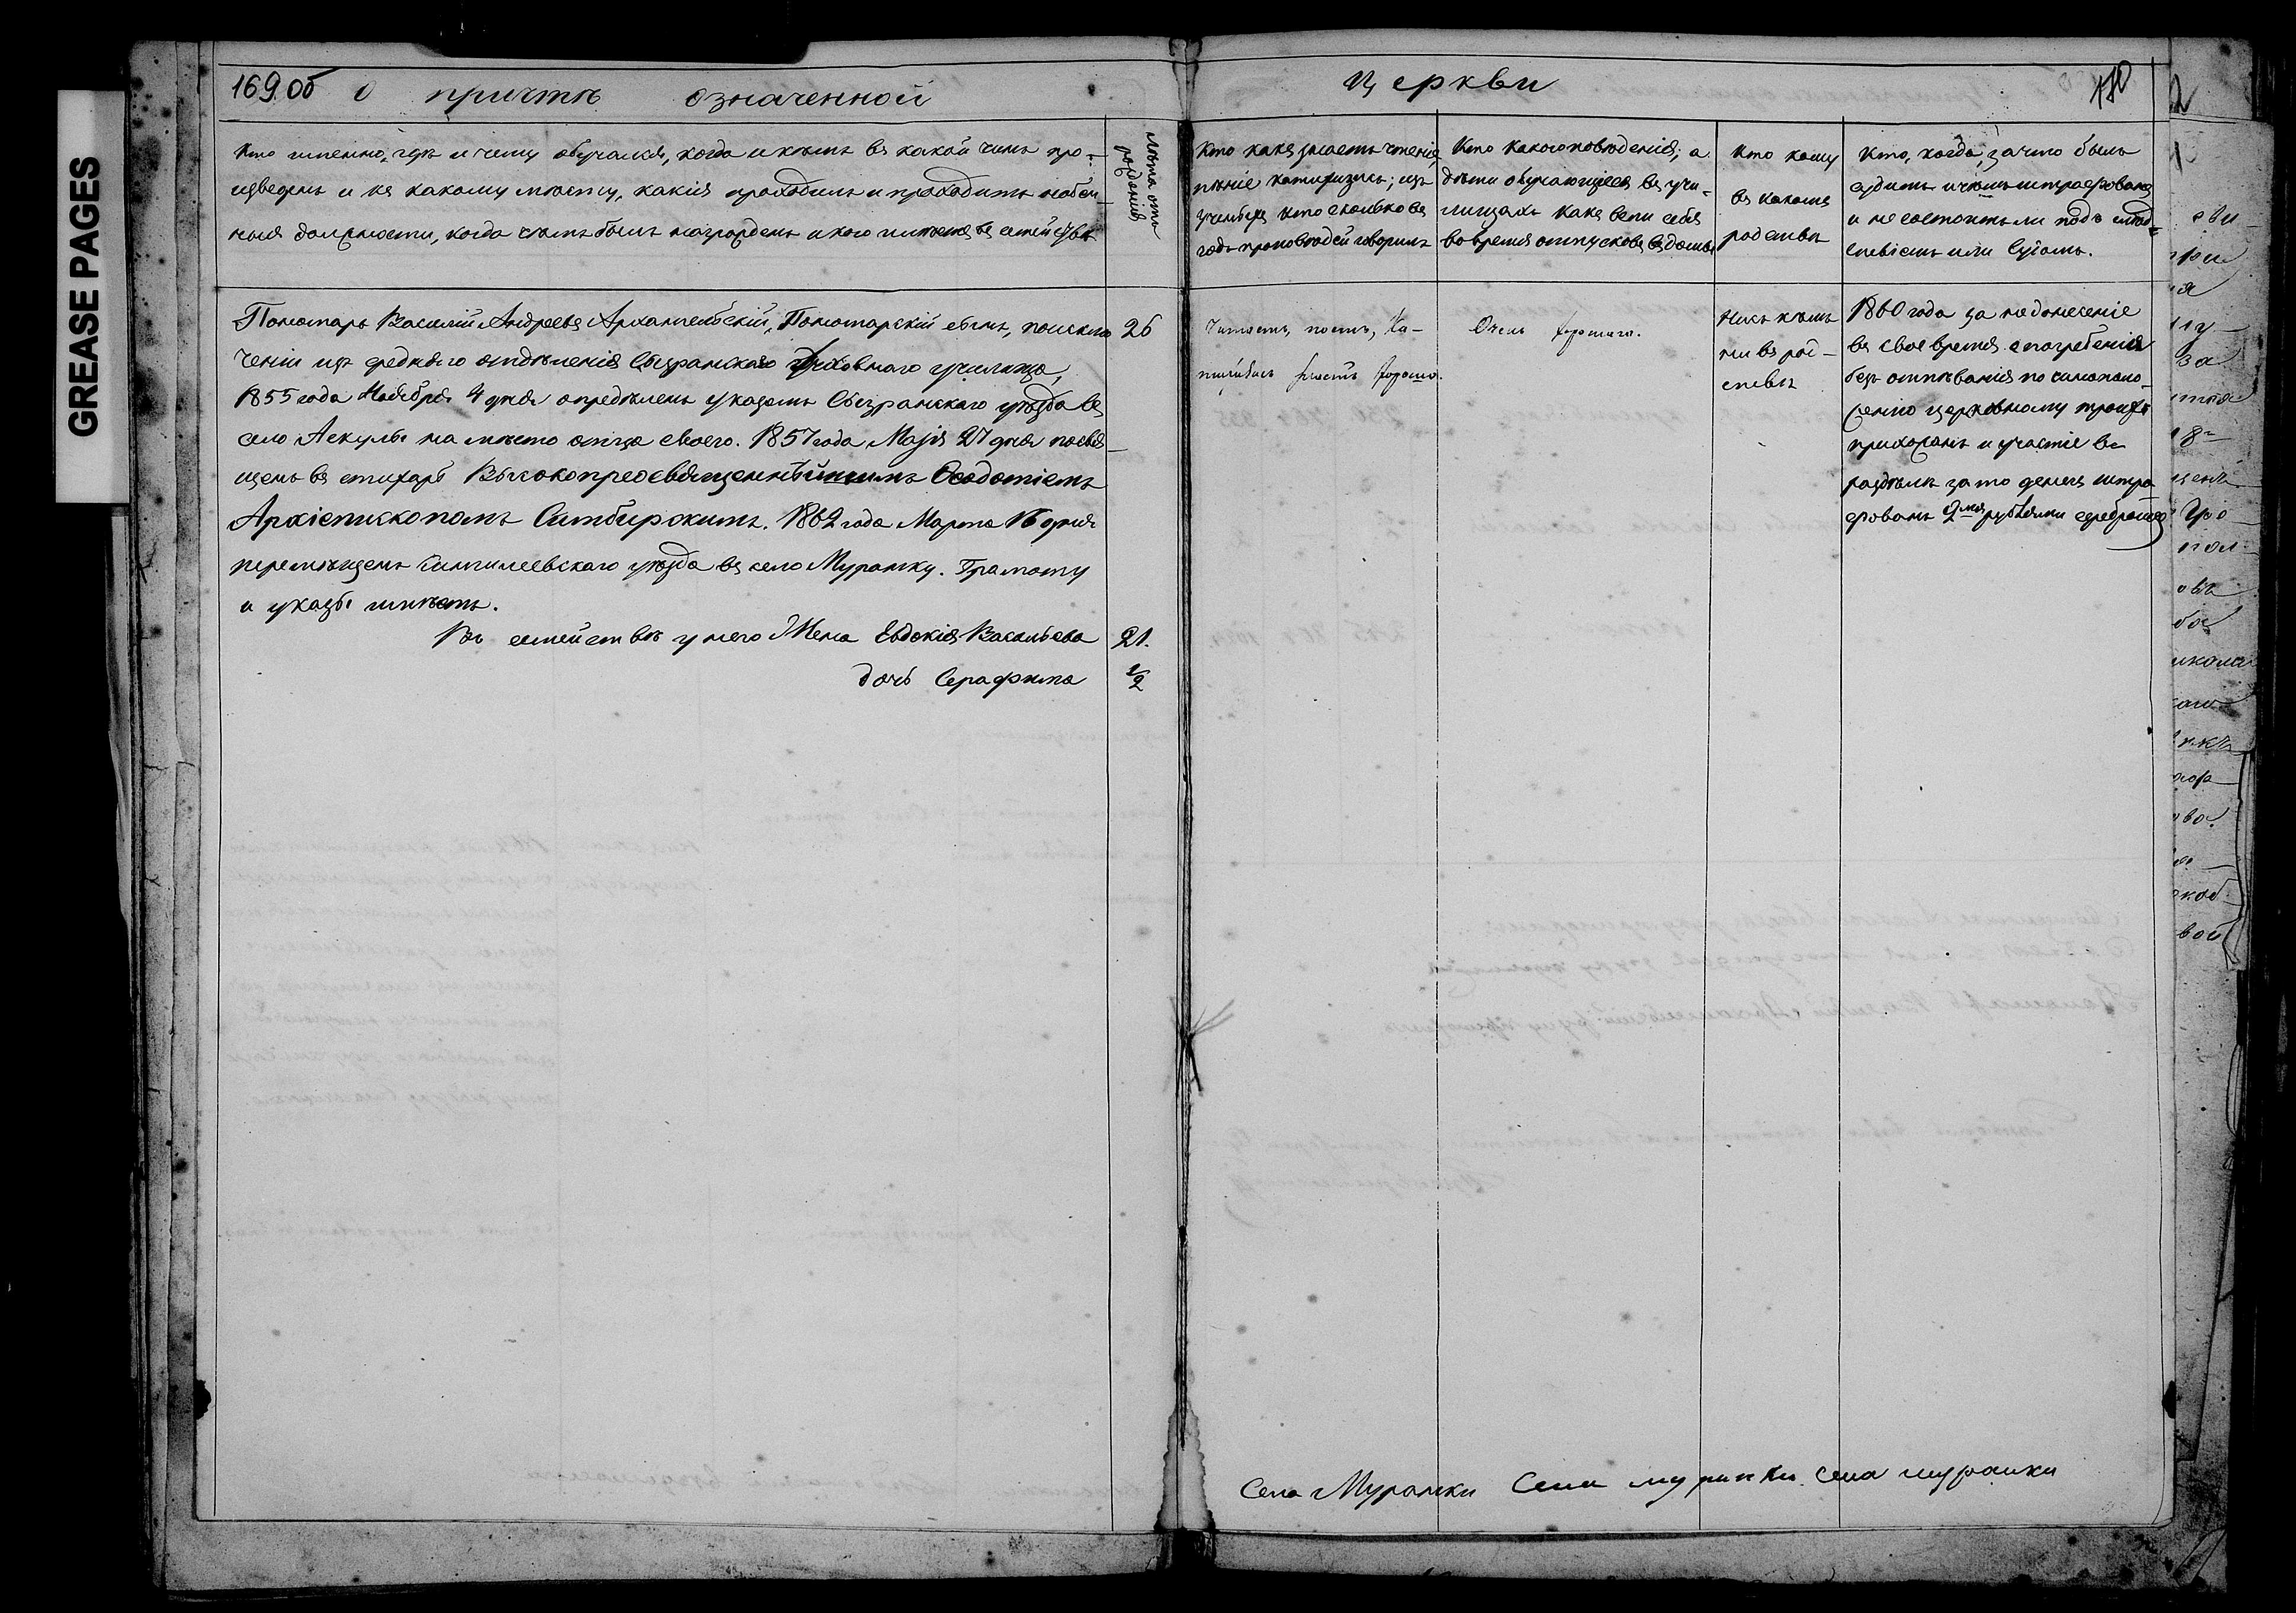 GREASE PAGES
169 об О причтѣ означенной
Церкви
170
Кто именно, гдѣ и чему обучался, когда и кѣмъ въ какой чинъ про-
изведенъ и къ какому мѣсту, какія проходилъ и проходитъ особен-
ныя должности, когда чѣмъ былъ награжденъ и кого имѣетъ въ семействѣ
Лѣта отъ
рожденія
Кто какъ знаетъ чтеніе,
пѣніе катихизисъ; изъ
ученыхъ кто сколько въ
годъ проповѣдей говорилъ
Кто какого поведенія; а
дѣти обучающіеся въ учи-
лищахъ какъ вели себя
во время отпусковъ въ домы
Кто кому
въ какомъ
родствѣ
Кто, когда, за что былъ
судимъ и чѣмъ штрафованъ
и не состоитъ ли подъ слѣд-
ствіемъ или судомъ.
Пономарь Василій Андреевъ Архангельскій, Пономарскій сынъ, по исклю
ченіи изъ средняго отдѣленія Сызранскаго Духовнаго училища,
1855 года Ноября 4 дня опредѣленъ указомъ Сызранскаго уѣзда въ
село Аскулы на мѣсто отца своего. 1857 года Маія 27 дня посвя-
щенъ въ стихарь Высокопреосвященнѣйшимъ Ѳеодотіемъ
Архіепископомъ Симбирскимъ. 1862 года Марта 16 дня
перемѣщенъ Сингилеевскаго уѣзда въ село Муранку. Грамоту
и указы имѣетъ.
Въ семействѣ у него Жена Евдокія Васильева
дочь Серафима
26
21.
1/2
Читаетъ, поетъ, Ка-
тихизисъ знаетъ хорошо.
Очень хорошаго.
Ни съ кѣмъ
ни въ род-
ствѣ
1860 года за недонесеніе
въ свое время о погребеніи
безъ отпѣванія по чиноположе-
женію церковному троихъ
прихожанъ и участіе въ
раздѣлѣ за то денегъ штра-
фованъ 2мя рублями серебромъ
Села Муранки Села муранки Села муранки